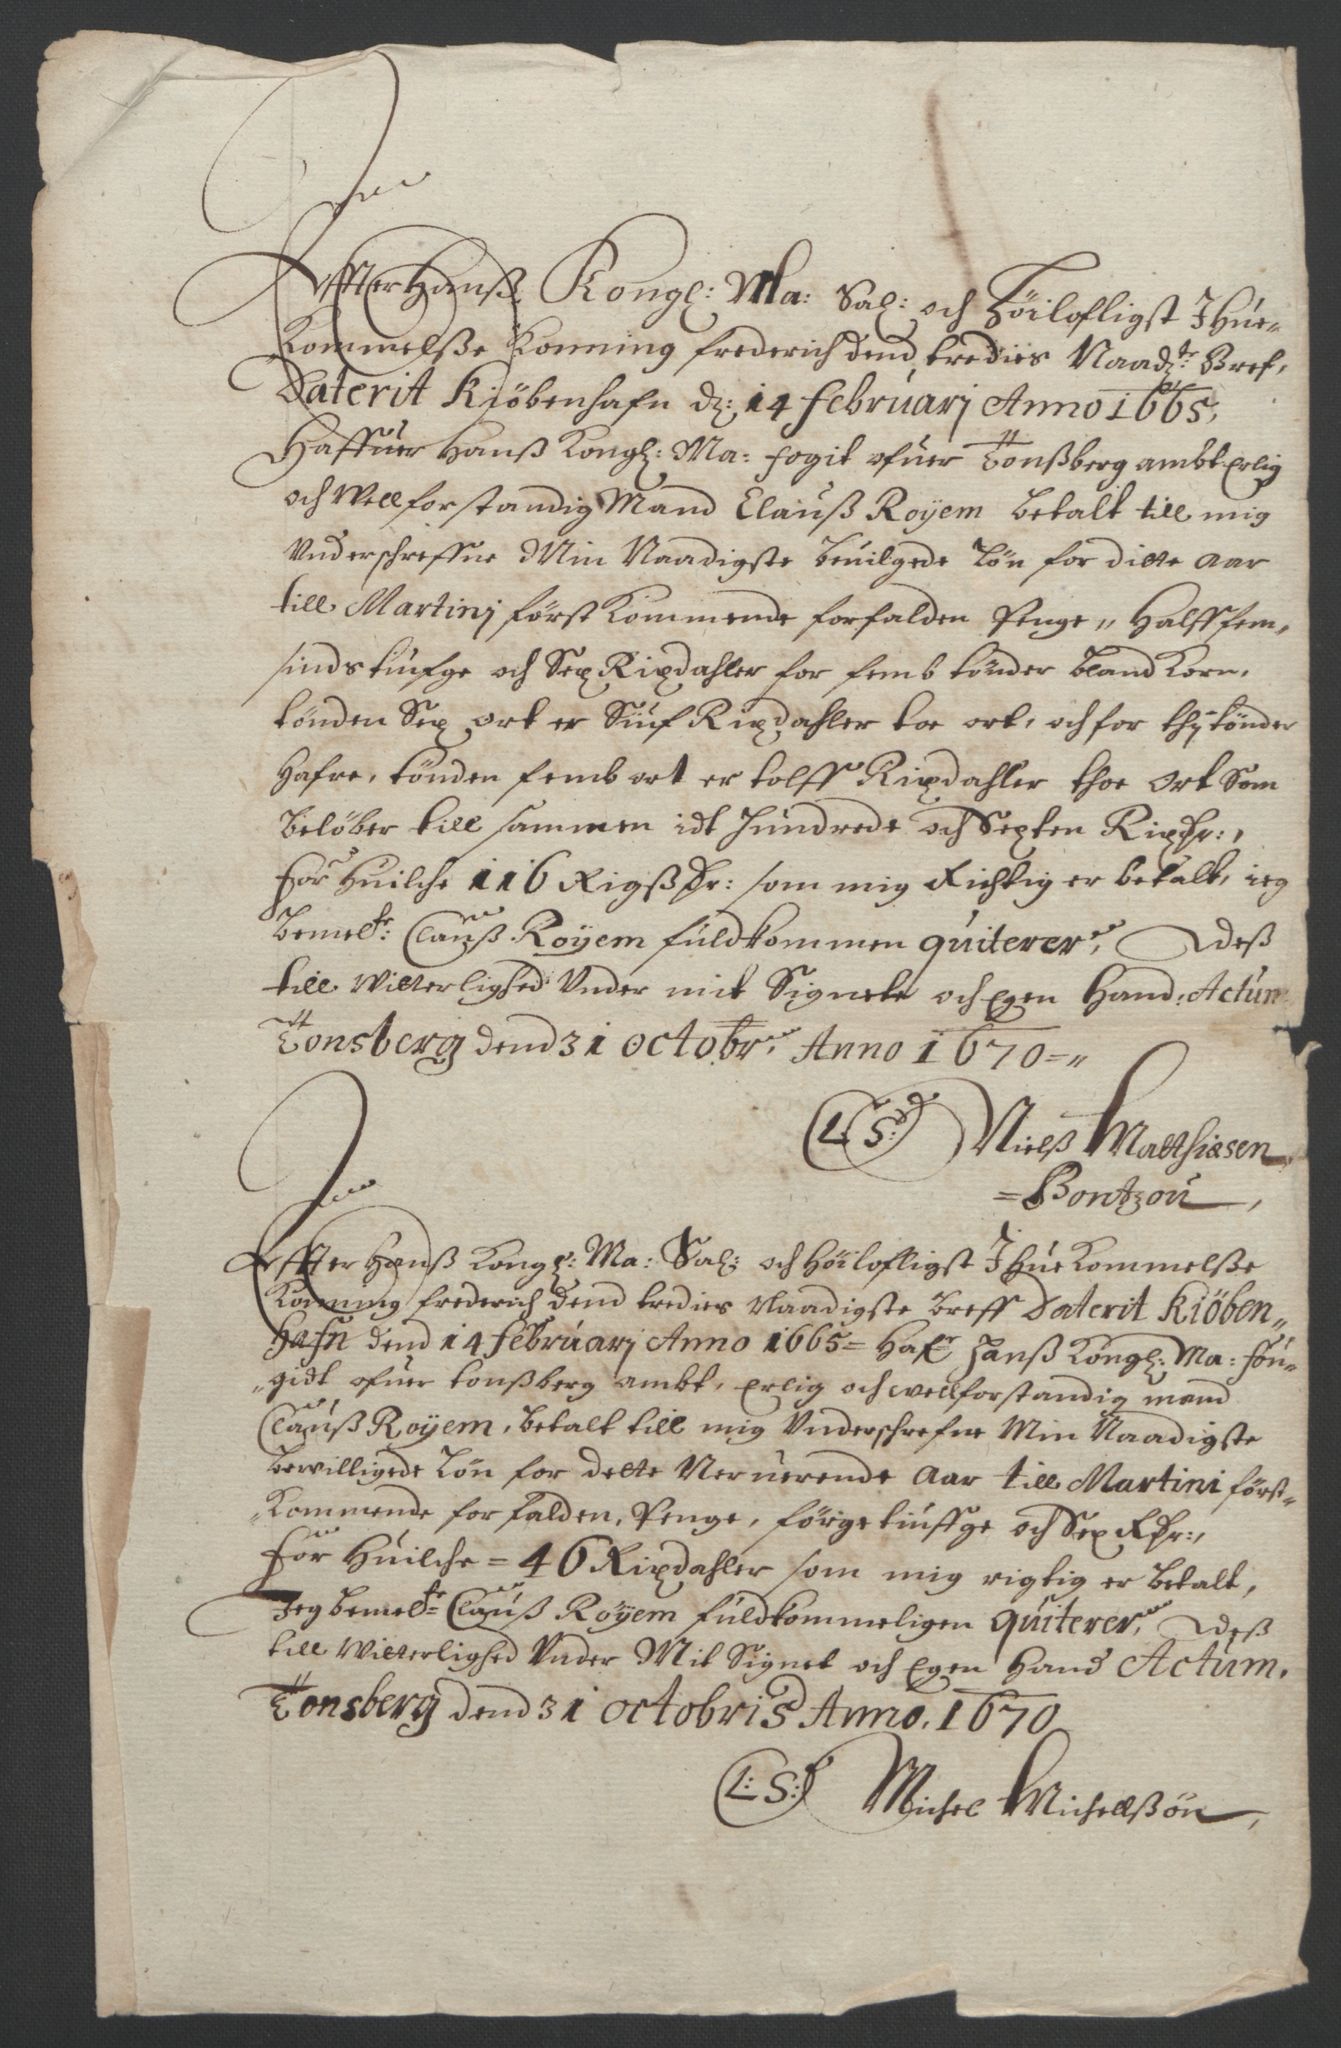 Effter Hanß Kongl: Ma: Sal: och Höilofligst Ihue-
Kommelße Konning frederich dend tredies Naadste Bref,
Daterit Kiöbenhafn d: 14 februarj Anno 1665,
Haffuer Hanß Kongl: Ma: fogit ofuer Tonßberg ambt Erlig
och Wellforstandig Mand Clauß Royem betalt till mig
Underschreffne Min Naadigste beuilgede Løn for dette Aar
till Martinj først Kommende forfalden Penge,, Halfffem-
sindstiufge och Sex Rixdahler for femb tönder bland Korn,
tönden Sex ort er Siuf Rixdahler toe ort, och for thj tönder
Hafre, tönden femb ort er tolff Rixdahler thoe Ort Som
belöber till sammen idt Hundrede och Sexten Rixdr:,
for Huilche 116 Rigßdr: som mig Richtig er betalt, ieg
bemelte: Clauß Royem fuldkommen quiterer, deß
till Witterlighed Under mit Signete och Egen Hand: Actum
Tonsberg dend 31 octobr, Anno 1670=,,
L S: Nielß Matthiesen
=Bontzou,
Effter Hanß Kongl: Ma: Sal: och Höilofligst Ihue Kommelße
Konning frederich dend tredies Naadigste breff Daterit Kiöben,,
Hafn dend 14 februarj Anno 1665= Hafr Hanß Kongl: Ma: fou-
,,gidt ofuer tonßberg ambt, Erlig och wellforstandig mand
Clauß Royem, betalt till mig Underschrefne Min Naadigste
bewilligede Løn for dette Neruerende Aar till Martini först-
,,Kommende forfalden, Penge, förgetiuffge och Sex Rdr:,
for Huilche = 46 Rixdahler som mig rigtig er betalt,
Jeg bemelte= Clauß Royem fuldkommeligen quiterer, deß
till Witterlighed Under Mit Signet och Egen Hand Actum,
Tonsberg dend 31 octobris Anno, 1670
L: S: Michel Michellßön,